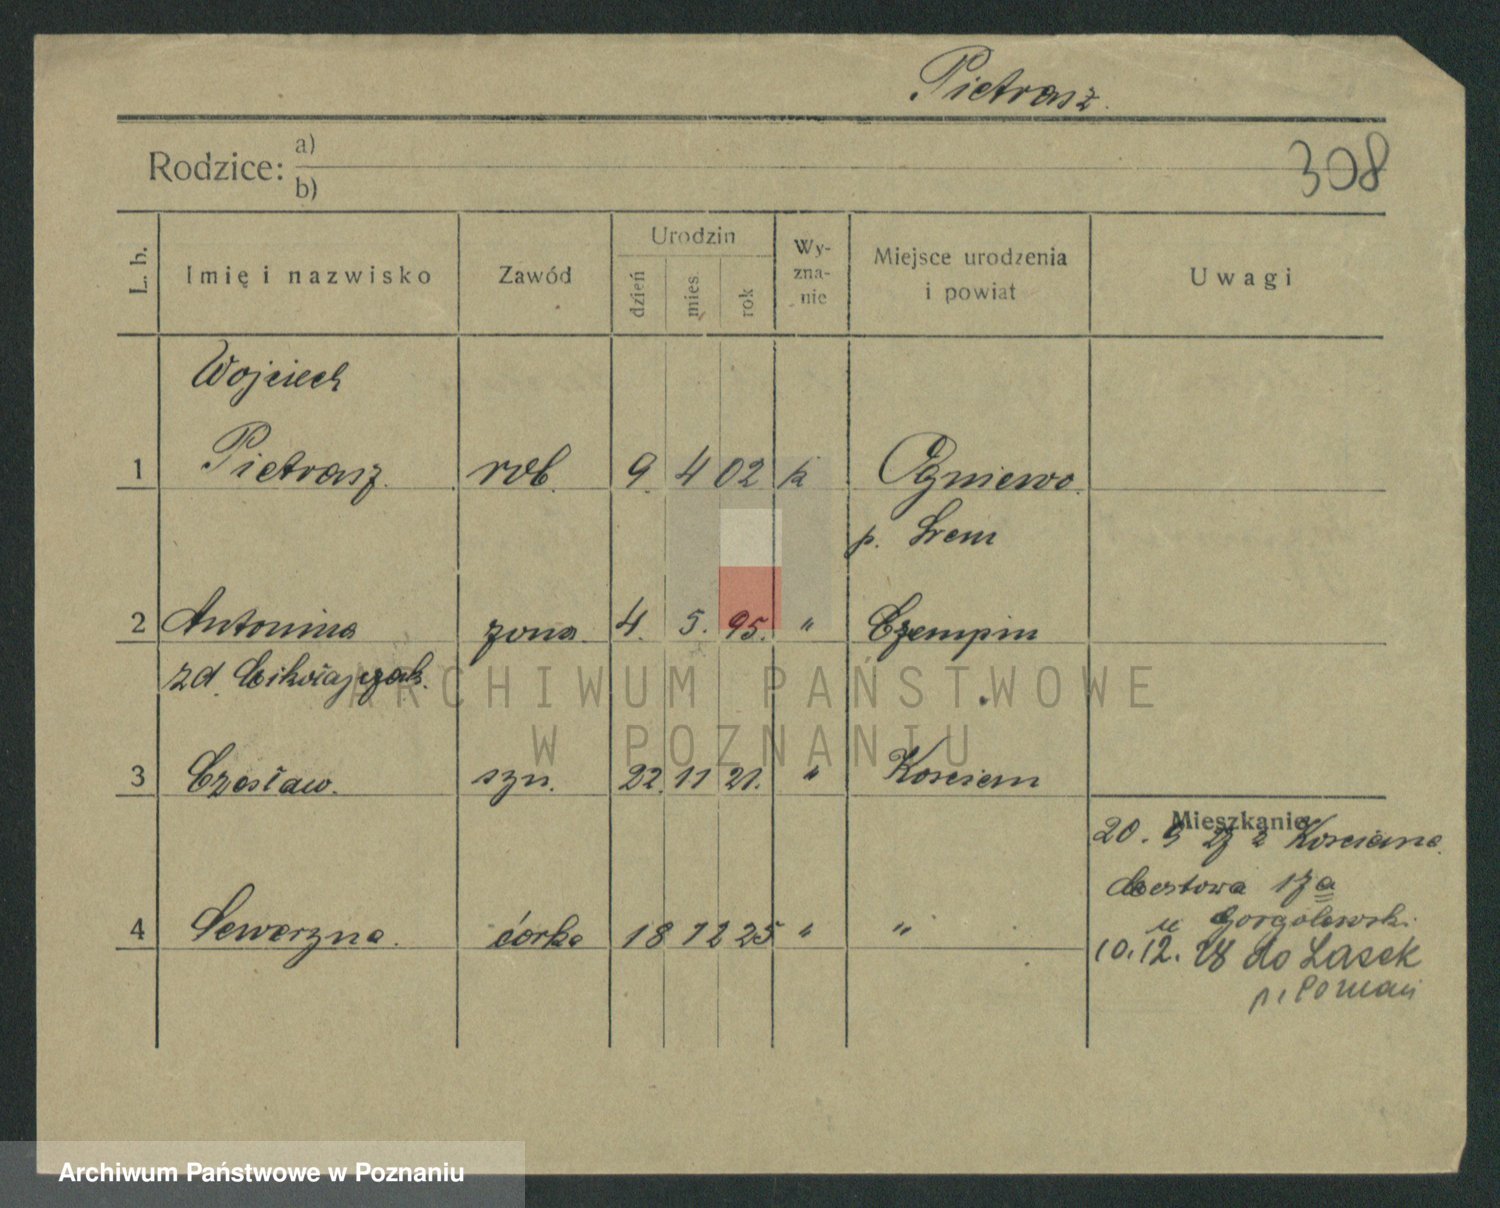 Pietrasz.
308
Rodzice: a)
b)
L. b. Imię i nazwisko Zawód Urodzin dzień mies rok Wy-zna-nie Miejsce urodzenia i powiat Uwagi
Wojciech
1 Pietrasz. rob. 9. 4 02 k Ogniewo.
p. Srem
2 Antonina zona. 4. 5. 95. " Czempin
zd.
ARCHIWUM PAŃSTWOWE
W POZNANIU
3 Czesław. szn. 22. 11 21. " Koscian
Mieszkanie
20. 9 27 z Kosciana.
17a
u Gorgolewski.
4 Seweryna. córka 18 12 25 " "
10. 12. 28 do Lasek
p. Poznań
Archiwum Państwowe w Poznaniu